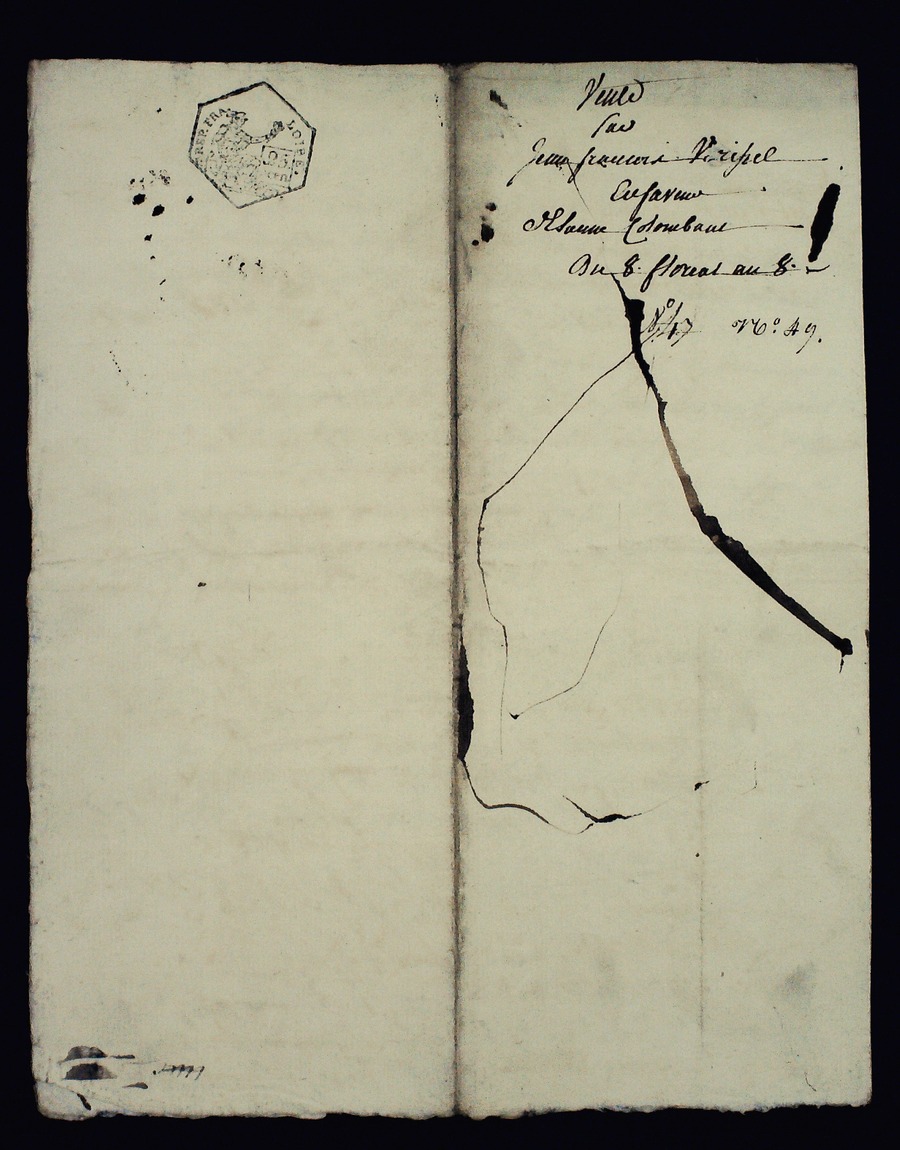 REP. FRA. LOIRE.
Vente
par
Jean francois Verissel
En faveur
Etienne Colombant
Du 8 floreal an 8.
N.º 47 N.º 49.